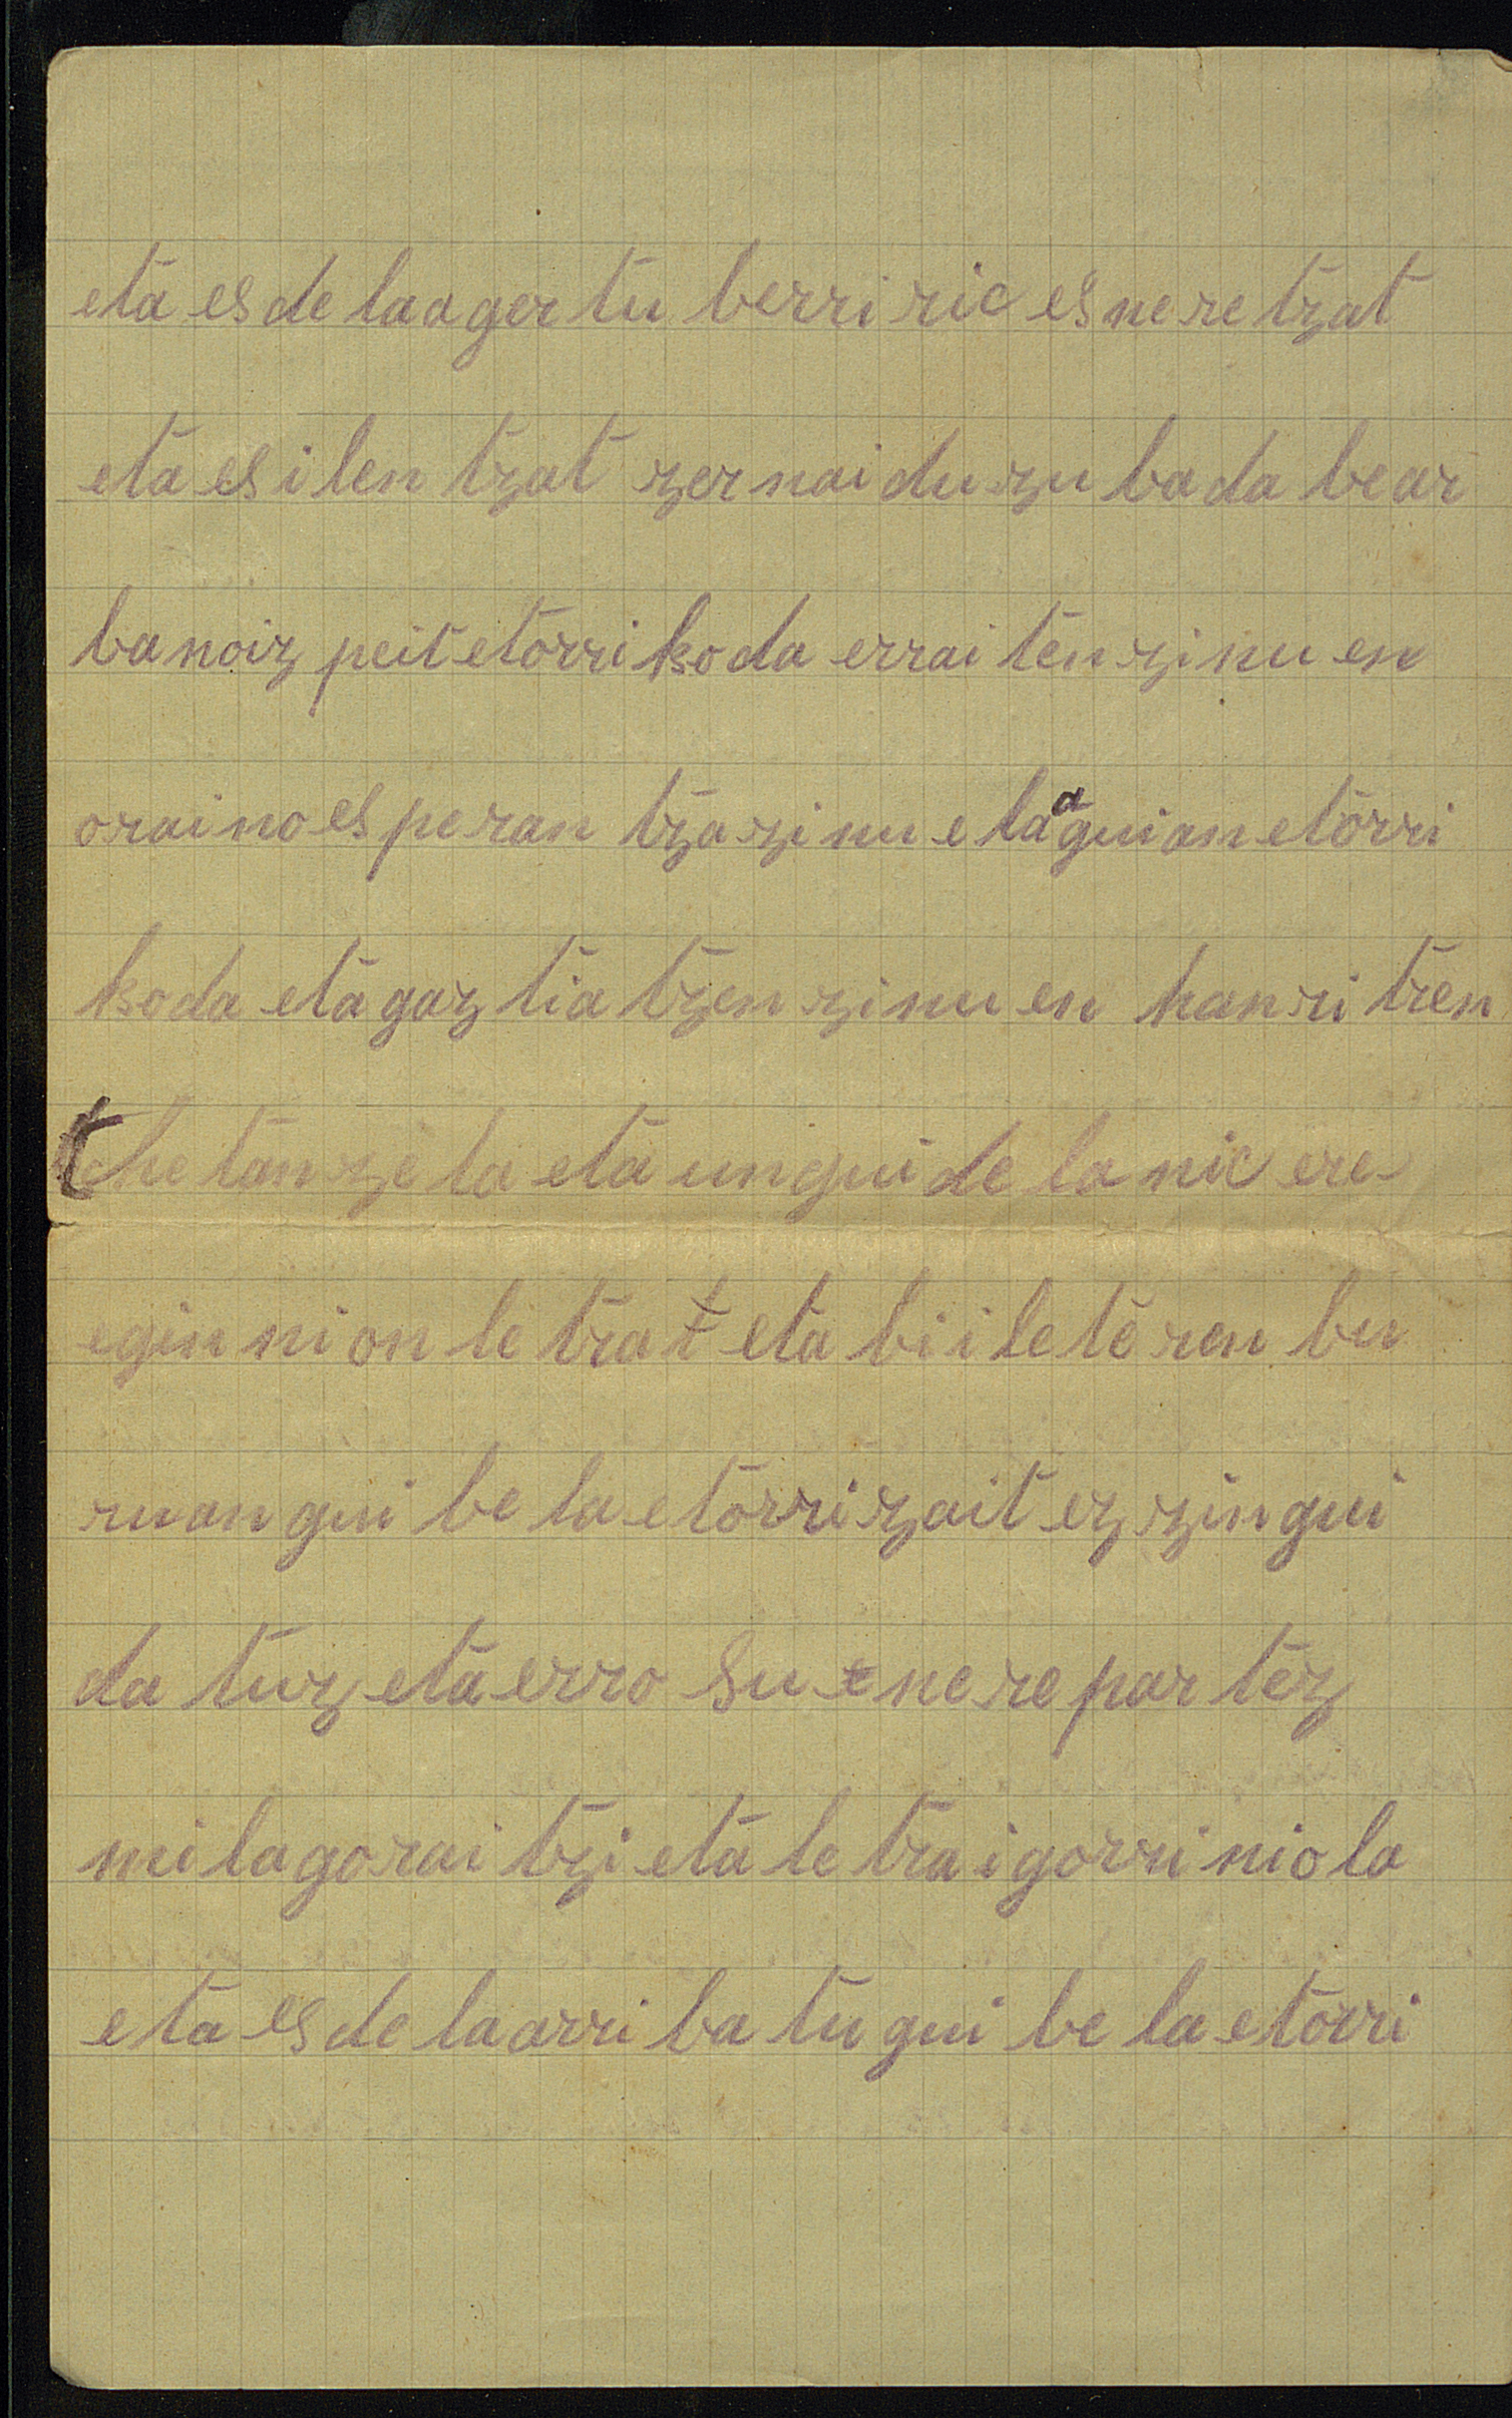 eta es de la ager tu berri ric es ne re tzat
eta es i len tzat zer nai du zu ba da bear
ba noiz peit etorri ko da errai ten zi nu en
orai no es pe ran tza zi nu eta a gui an etorri
ko da eta gaz tia tzen zi nu en han ri tren
tche tan ze la eta un gui de la nic ere
egin ni on le tra t eta bi i le te ren bu
ru an gui be la etorri zait ez zin gui
da tuz eta erro su e ne re par tez
mi la go rai tzi eta le tra i gorri nio la
eta es de la arri ba tu gui be la etorri